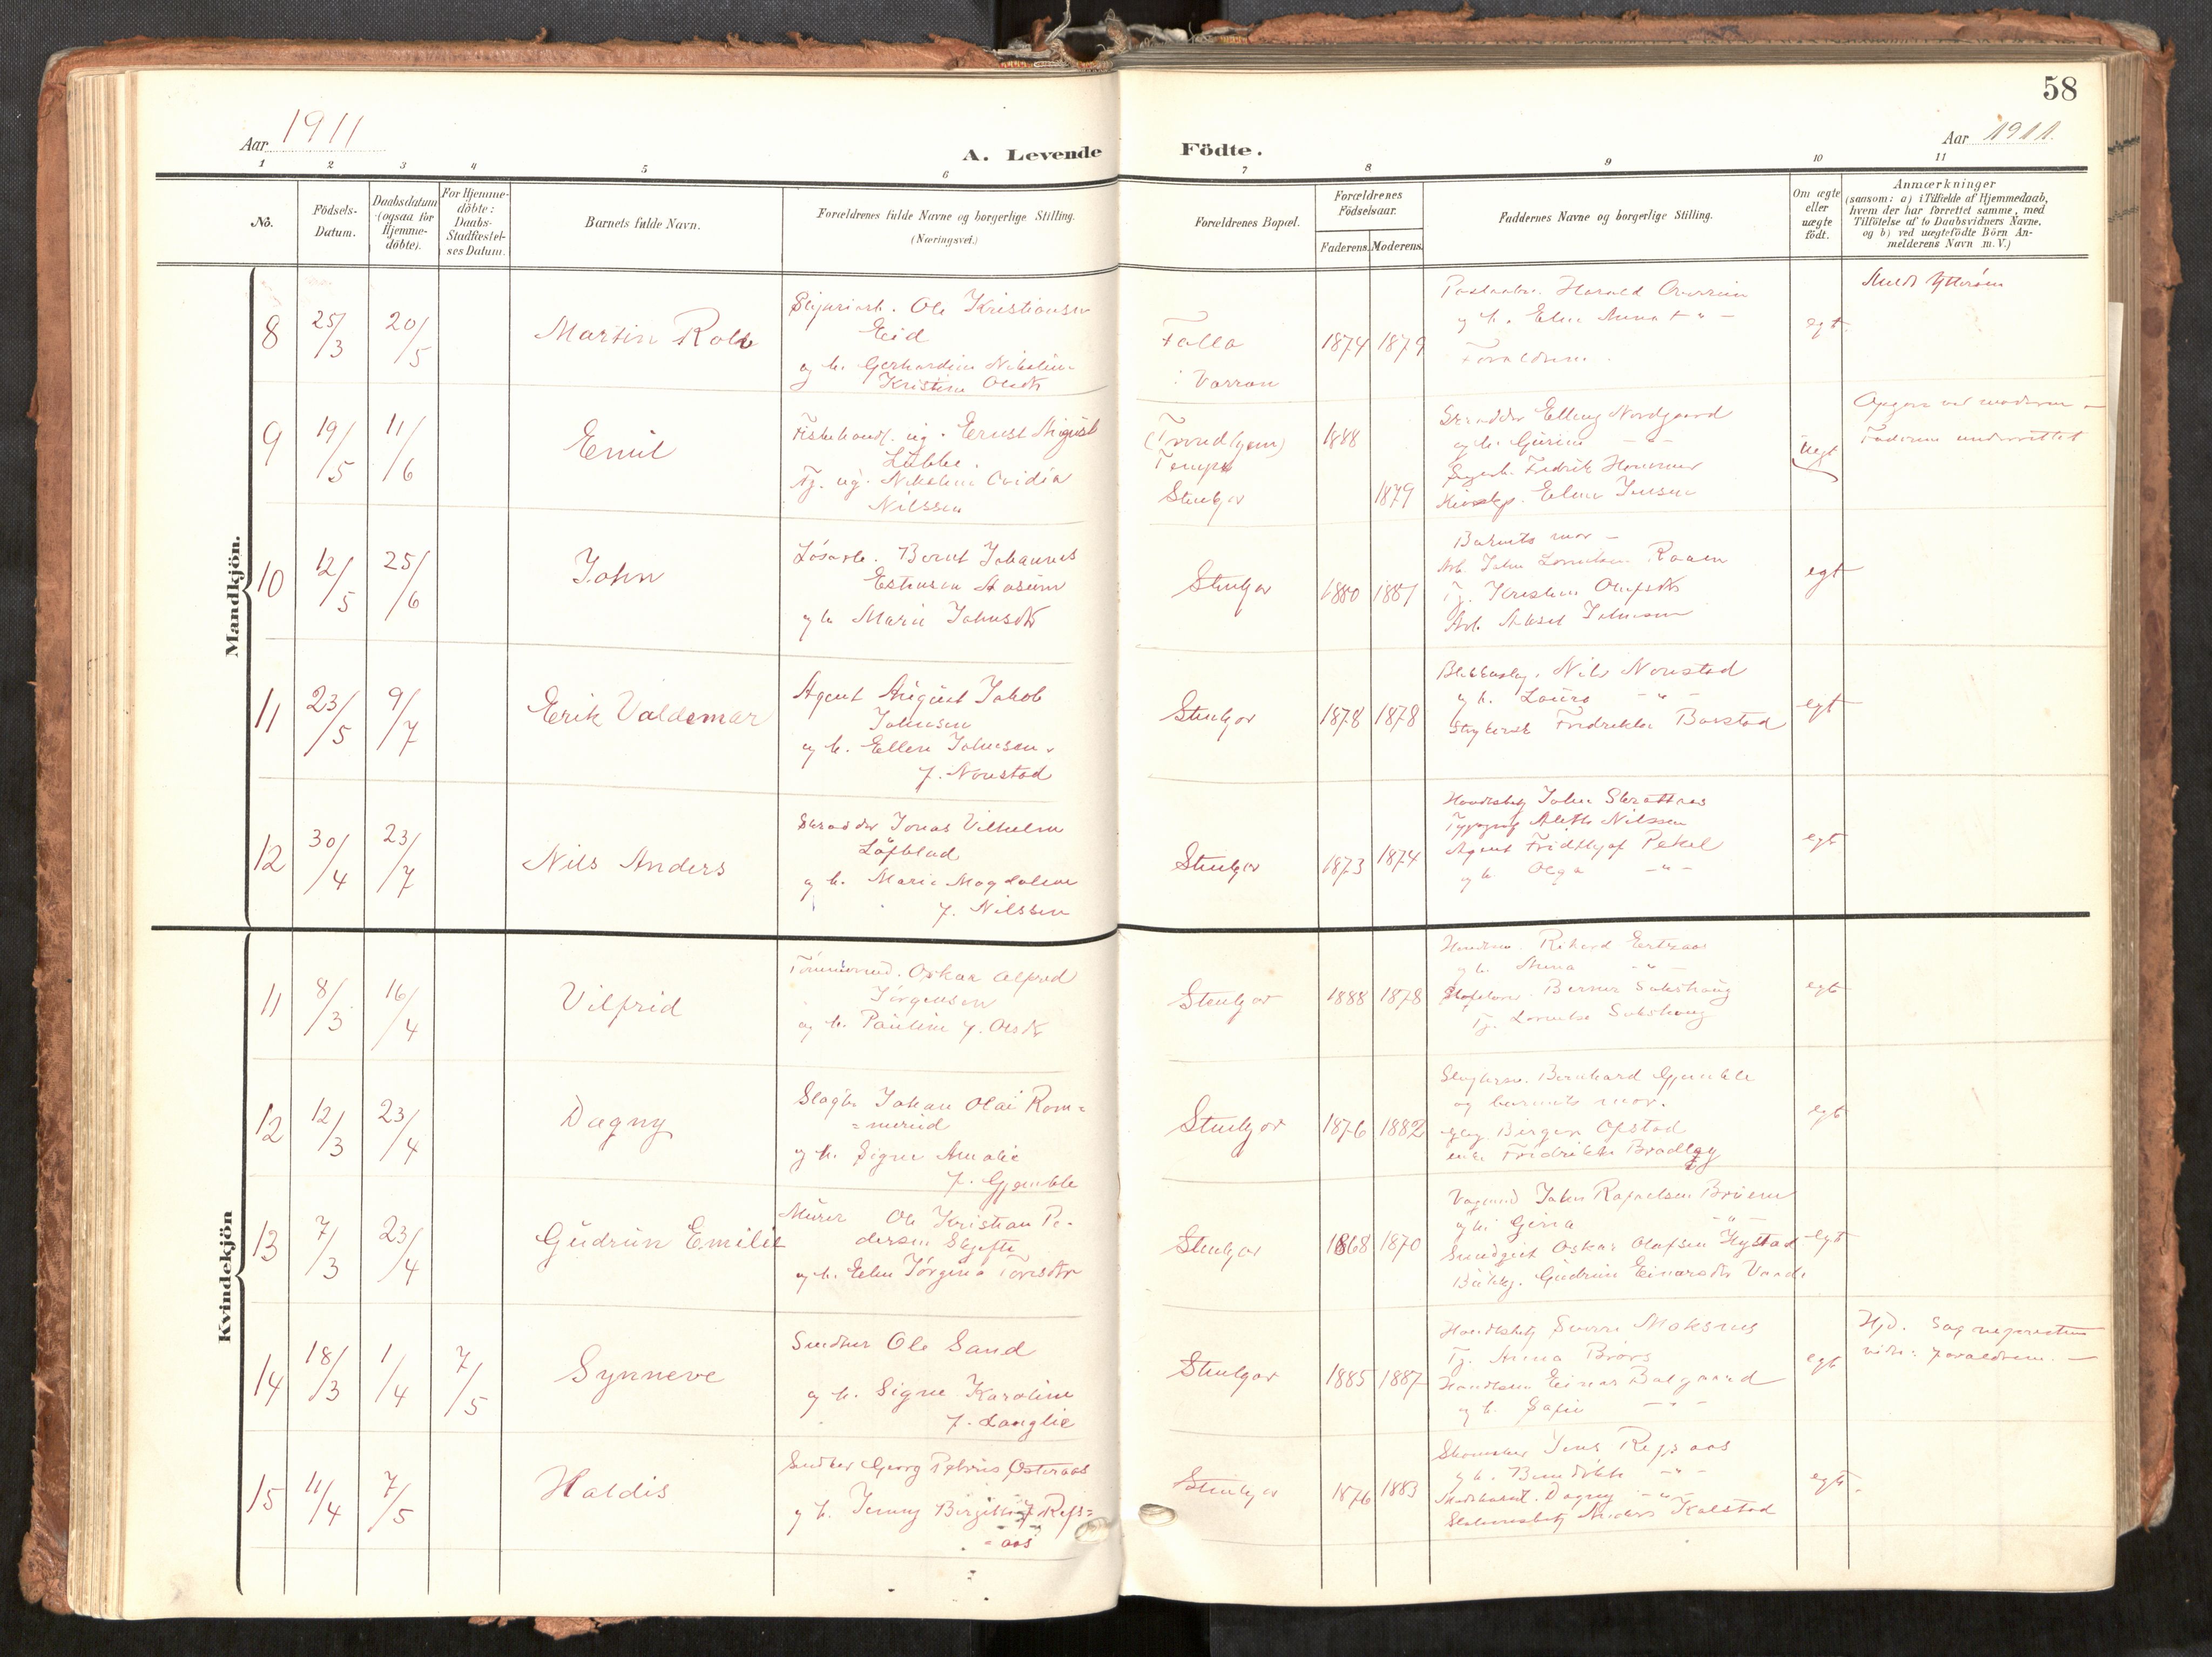 58
Aar 1911
A. Levende Födte.
Aar 1911.
1 2 3 4 5 6 7 8 9 10 11
No.
Födsels-Datum.
Daabsdatum (ogsaa for Hjemme-döbte).
For Hjemme-döbte: Daabs-Stadfæstel-ses Datum.
Barnets fulde Navn.
Forældrenes fulde Navne og borgerlige Stilling.
(Næringsvei.)
Forældrenes Bopæl.
Forældrenes Födselsaar.
Faderens. Moderens.
Faddernes Navne og borgerlige Stilling.
Om ægte eller uægte födt.
Anmærkninger
(saasom: a) i Tilfælde af Hjemmedaab,
hvem der har forrettet samme, med
Tilföielse af to Daabsvidners Navne,
og b) ved uægtefödte Börn An-
melderens Navn m. V.)
Mandkjön.
8 25/3 20/5 Martin
Ole Kristiansen
Eid
og h. Gerhardine Nikoline
Kristine Olsdtr
Falla
i Varran
1874 1879
Harald Overrein
og h. Anna - " -
Forældrene.
egt
9 19/5 11/6 Emil
Fiskehandl. ug. Ernst August
Lübke.
Tj. ug. Nikoline Ovidia
Nilssen
(Trondhjem)
Tempe
Stenkjer
1888
1879
Skrædder Elling Nordgaard
og h. Gurine - " -
Fredrik Hammer
Elen Jensen
Uegt
Opgave ved moderen -
Faderen underrettet
10 12/5 25/6 John
Løsarb. Bernt Johannes
Estensen Aasum
og h. Marie Johnsdtr
Stenkjer
1880 1881
Barnets mor -
Arb. John Lorentsen Raaen
Tj. Kristine Olufsdtr
Arb. Aksel Johnsen
egt
11 23/5 9/7 Erik Valdemar
Agent August Jakob
Johnsen
og h. Ellen Johnsen
f. Nonstad
Stenkjer
1878 1878
Nils Nonstad
og h. Laura - " -
Fredrikke Barstad
egt
12 30/4 23/7 Nils Anders
Skrædder Jonas Vilhelm
Löfblad
og h. Marie Magdalene
f. Nilssen
Stenkjer
1873 1874
Handelsbetj John Skrattnes
Typograf Aleth Nilssen
Agent Fridthjof Pekel
og h. Olga - " -
egt
Kvindekjön
11 8/3 16/4 Vilfrid
Tömmermd. Oskar Alfred
Jörgensen
og h. Pauline f. Olsdtr
Stenkjer
1888 1878
Rikard
og h. Anna - " -
Berner Sakshaug
Tj. Sakshaug
egt
12 12/3 23/4 Dagny
Johan Olai Rom=
=merud
og h. Signe Amalie
f. Gjemble
Stenkjer
1876 1882
Bernhard Gjemble
og barnets mor.
Birger Opstad
enke Fredrikke Bradley
egt
13 7/3 23/4 Gudrun Emilie
Murer Ole Kristian Pe-
dersen Skjefte
og h. Elen Jörgine Toresdtr
Stenkjer
1868 1870
John Rafaelsen Bruem
og h. Gina - " -
Oskar Olafsen Hystad
Gudrun Einarsdtr
egt
14 18/3 1/4 7/5 Synneve
Snedker Ole Sand
og h. Signe Karoline
f. Langlie
Stenkjer
1885 1887
Handelsbetj Sverre Moksnes
Tj. Anna Brörs
Handelsm Einar Balgaard
og h. Safie - " -
egt
Hjd. Sognepresten
vidn: forældrene. -
15 11/4 7/5 Haldis
Snedker Georg Petrus Österaas
og h. Jenny Birgitte f Refs=
=aas
Stenkjer
1876 1883
Skomaker Jens Refsaas
og h. Benedikte - " -
Dagny - " -
Anders Kalstad
egt.